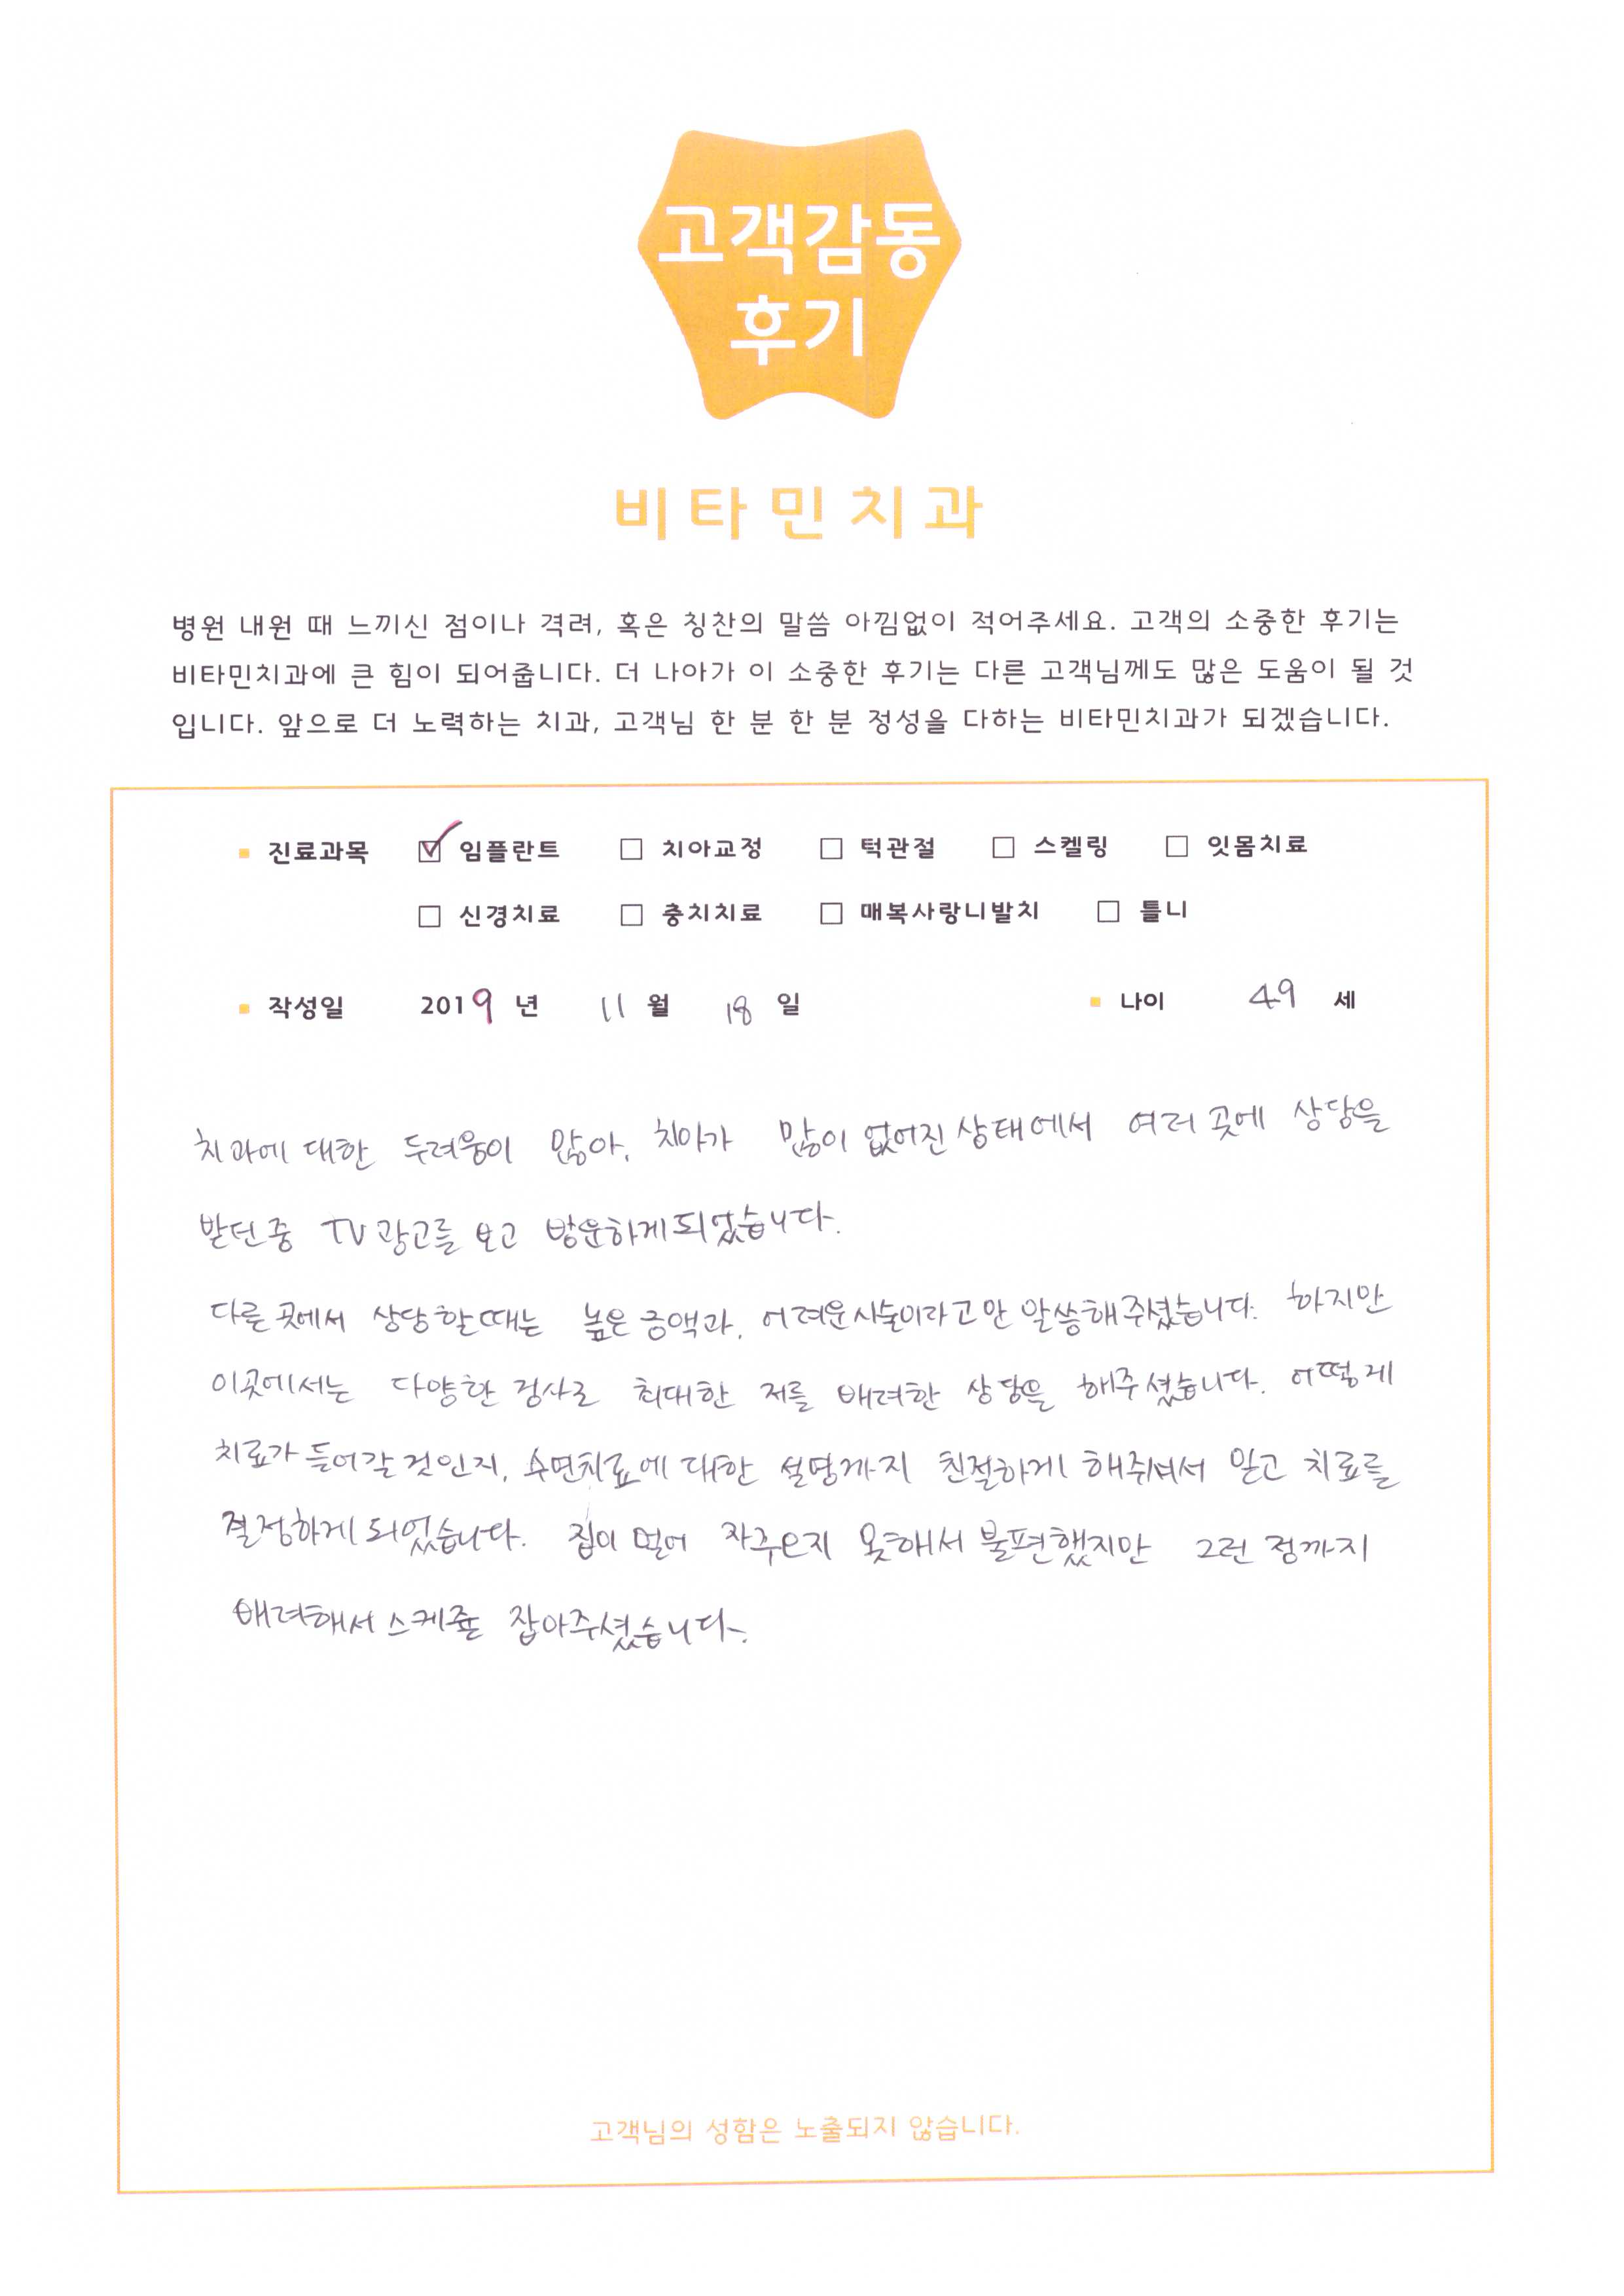 고객감동
후기
비타민치과
병원 내원 때 느끼신 점이나 격려, 혹은 칭찬의 말씀 아낌없이 적어주세요. 고객의 소중한 후기는
비타민치과에 큰 힘이 되어줍니다. 더 나아가 이 소중한 후기는 다른 고객님께도 많은 도움이 될 것
입니다. 앞으로 더 노력하는 치과, 고객님 한 분 한 분 정성을 다하는 비타민치과가 되겠습니다.
진료과목 임플란트 치아교정 턱관절 스켈링 잇몸치료
신경치료 충치치료 매복사랑니발치 틀니
작성일 2019 년 11 월 18 일 나이 49 세
치과에 대한 두려움이 많아, 치아가 많이 없어진 상태에서 여러 곳에 상담을
받던중 TV 광고를 보고 방문하게되었습니다.
다른 곳에서 상담할때는 높은 금액과, 어려운시술이라고만 말씀해주셨습니다. 하지만
이곳에서는 다양한 검사로 최대한 저를 배려한 상담을 해주셨습니다. 어떻게
치료가 들어갈 것인지, 수면치료에 대한 설명까지 친절하게 해주셔서 믿고 치료를
결정하게 되었습니다. 집이 멀어 자주오지 못해서 불편했지만 그런 점까지
배려해서 스케쥴 잡아주셨습니다.
고객님의 성함은 노출되지 않습니다.